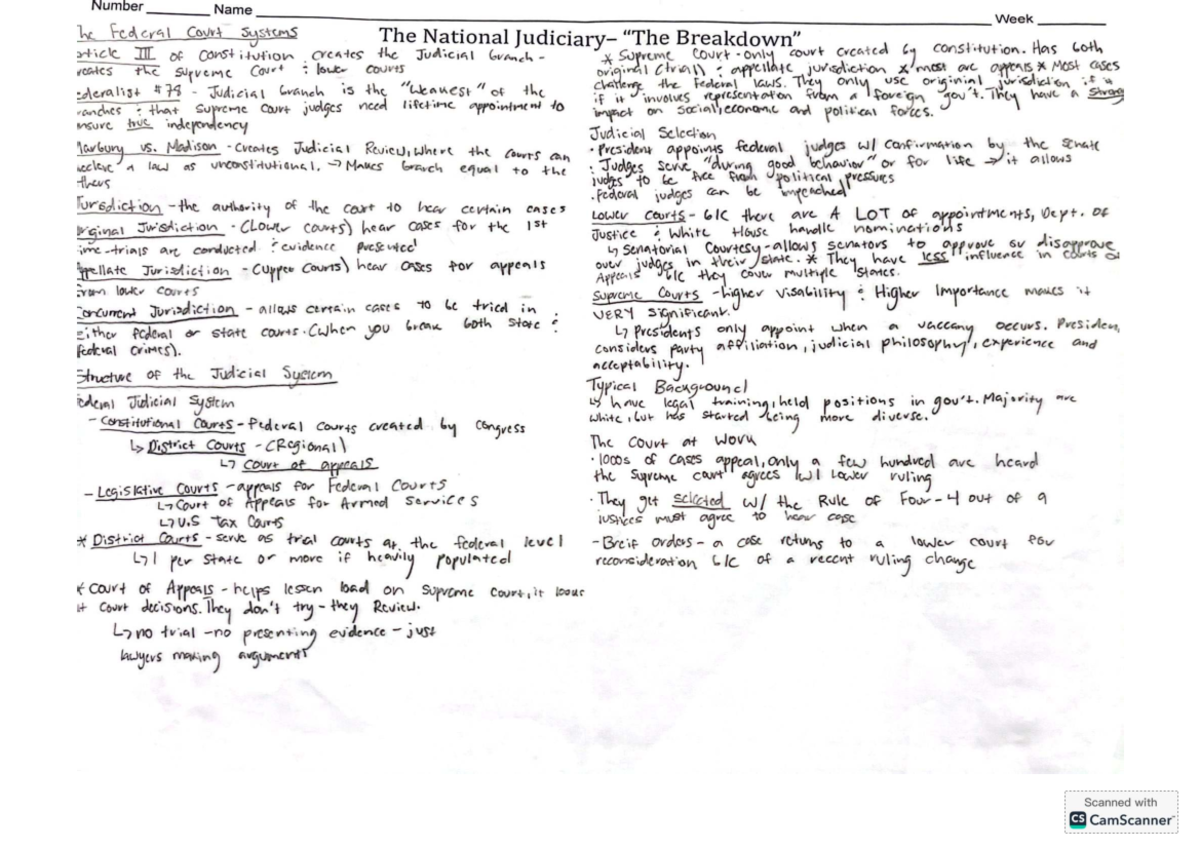 Number Name Week
The National Judiciary– "The Breakdown"
he Federal Court Systems
rticle III of constitution creates the Judicial Branch -
reates the Supreme Court : lower courts
ederalist #78 - Judicial branch is the "Weakest" of the
ranches : that Supreme Court judges need lifetime appointment to
nsure true independency
Marbury vs. Madison - Creates Judicial Review, Where the courts can
declare a law as unconstitutional. → Makes branch equal to the
thers
Jurisdiction - the authority of the court to hear certain cases
riginal Jurisdiction - (Lower Courts) hear cases for the 1st
ime - trials are conducted : evidence presented
Appellate Jurisdiction - (Upper Courts) hear cases for appeals
from lower courts
Concurrent Jurisdiction - allows certain cases to be tried in
either federal or state courts. (when you break both state :
federal crimes).
Structure of the Judicial System
ederal Judicial System
- Constitutional Courts - Federal courts created by congress
↳ District Courts - (Regional)
↳ Court of appeals
- Legislative Courts - appeals for Federal Courts
↳ Court of Appeals for Armed Services
↳ U.S Tax Courts
* District Courts - serve as trial courts at the federal level
↳ 1 per state or more if heavily populated
* Court of Appeals - helps lessen load on Supreme Court, it looks
at court decisions. They don't try - they Review.
↳ no trial - no presenting evidence - just
lawyers making arguments
* Supreme Court - only court created by constitution. Has both
original (trial) : appellate jurisdiction * most are appeals * Most cases
challenge the Federal laws. They only use originial jurisdiction if
if it involves representation from a foreign gov't. They have a strong
impact on social, economic and political forces.
Judicial Selection
• President appoints federal judges w/ confirmation by the senate
• Judges serve "during good behavior" or for life → it allows
judges to be free from political pressures
• Federal judges can be impeached
Lower Courts - b/c there are A LOT of appointments, Dept. of
Justice : White House handle nominations
↳ Senatorial Courtesy - allows senators to approve or disapprove
over judges in their state. * They have less influence in courts of
Appeals b/c they cover multiple states.
Supreme Courts - higher visability : Higher Importance makes it
VERY significant.
↳ Presidents only appoint when a vaccany occurs. Presiden
considers party affiliation, judicial philosophy, experience and
acceptability.
Typical Background
↳ have legal training, held positions in gov't. Majority are
white, but has started being more diverse.
The Court at Work
• 1000s of cases appeal, only a few hundred are heard
the Supreme court agrees w/ lower ruling
• They get selected w/ the Rule of Four - 4 out of 9
justices must agree to hear case
- Breif orders - a case returns to a lower court for
reconsideration b/c of a recent ruling change
Scanned with
CS CamScanner